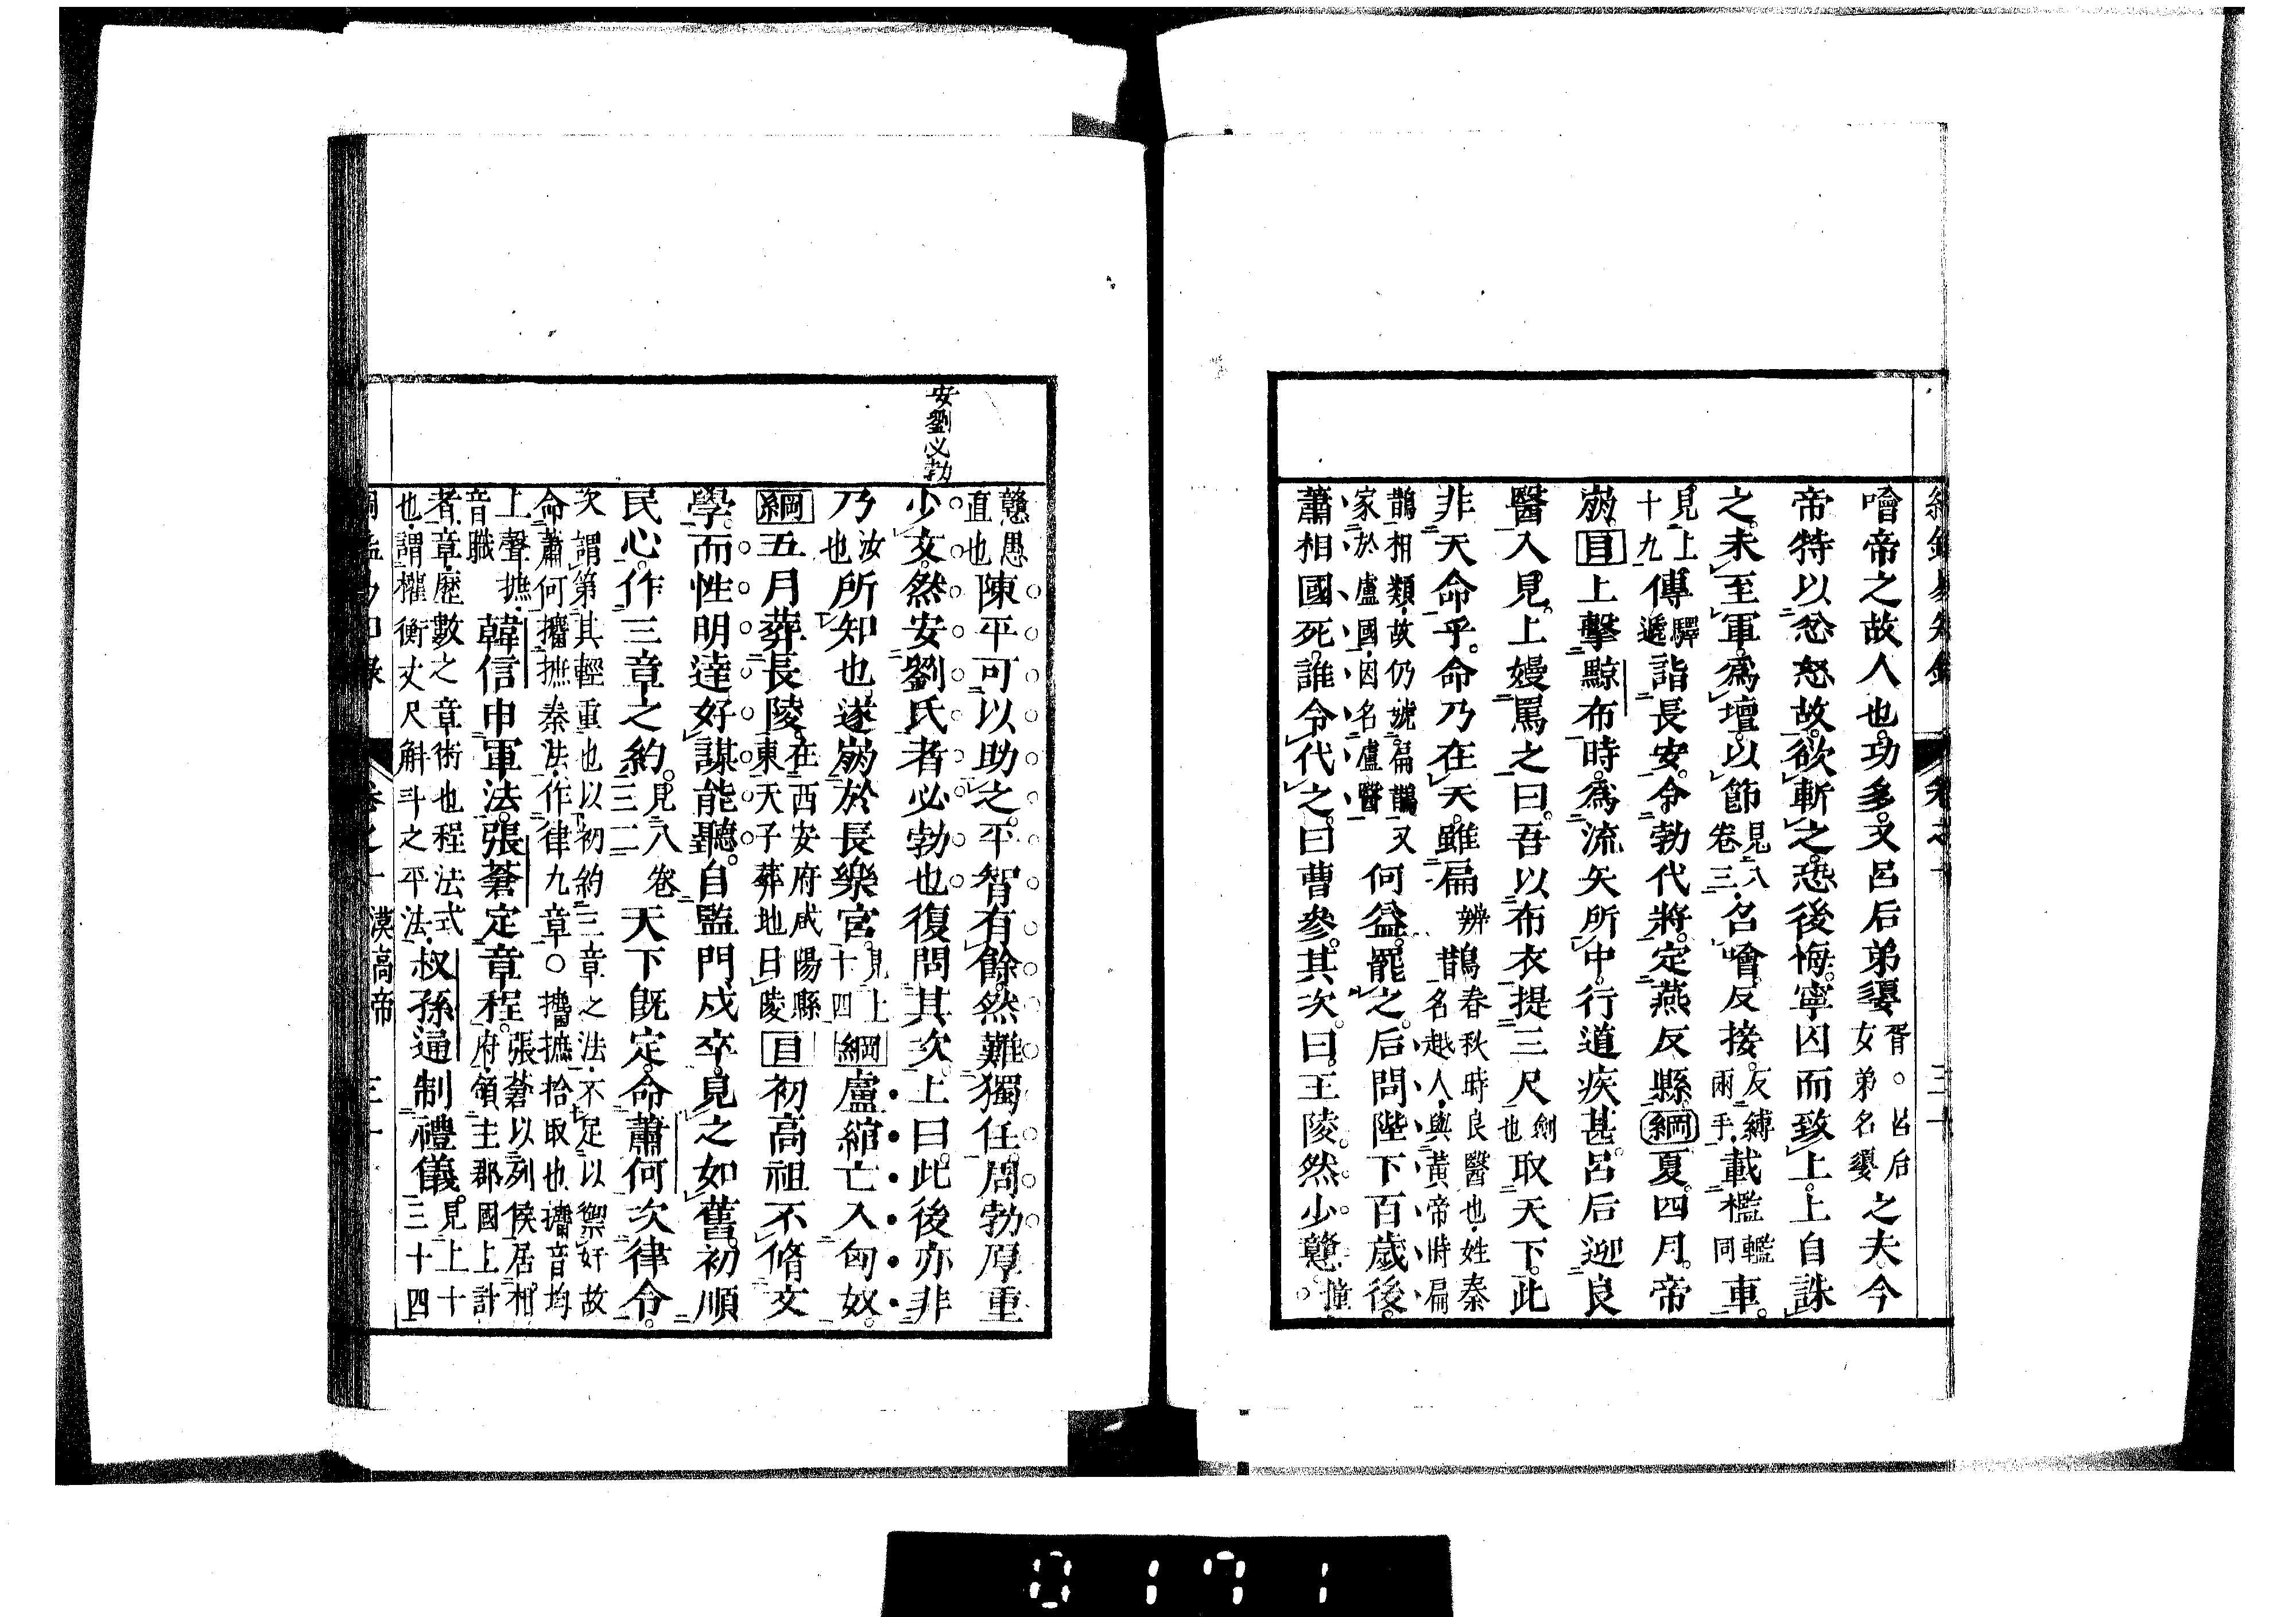 噲帝之故人也功多又呂后弟嬃胥○呂后女弟名嬃之夫今
帝特以忿怒故欲斬之恐後悔寧囚而致上上自誅
之未至軍爲壇以節見八卷三召噲反接反縛兩手載檻轞同車
見上十九傳驛遞詣長安令勃代將定燕反縣綱夏四月帝
崩目上擊黥布時爲流矢所中行道疾甚呂后迎良
醫入見上嫚罵之曰吾以布衣提三尺劍也取天下此
非天命乎命乃在天雖扁辨鵲春秋時良醫也姓秦名越人與黃帝時扁
鵲相類故仍號扁鵲又家於盧國因名盧醫何益罷之后問陛下百歲後
蕭相國死誰令代之曰曹參其次曰王陵然少戇撞○
戇愚直也陳平可以助之平智有餘然難獨任周勃厚重
安劉必勃
少文然安劉氏者必勃也復問其次上曰此後亦非
乃汝也所知也遂崩於長樂宮見上十四綱盧綰亡入匈奴
綱五月葬長陵在西安府咸陽縣東天子葬地曰陵目初高祖不脩文
學而性明達好謀能聽自監門戍卒見之如舊初順
民心作三章之約見八卷三二天下旣定命蕭何次律令
次謂第其輕重也以初約三章之法不足以禦奸故命蕭何攟摭秦法作律九章○攟摭拾取也攟音均
上聲摭音職韓信申軍法張蒼定章程張蒼以列侯居相府領主郡國上計
者章歷數之章術也程法式也謂權衡丈尺斛斗之平法叔孫通制禮儀見上十三十四
卷之十 漢高帝
0171